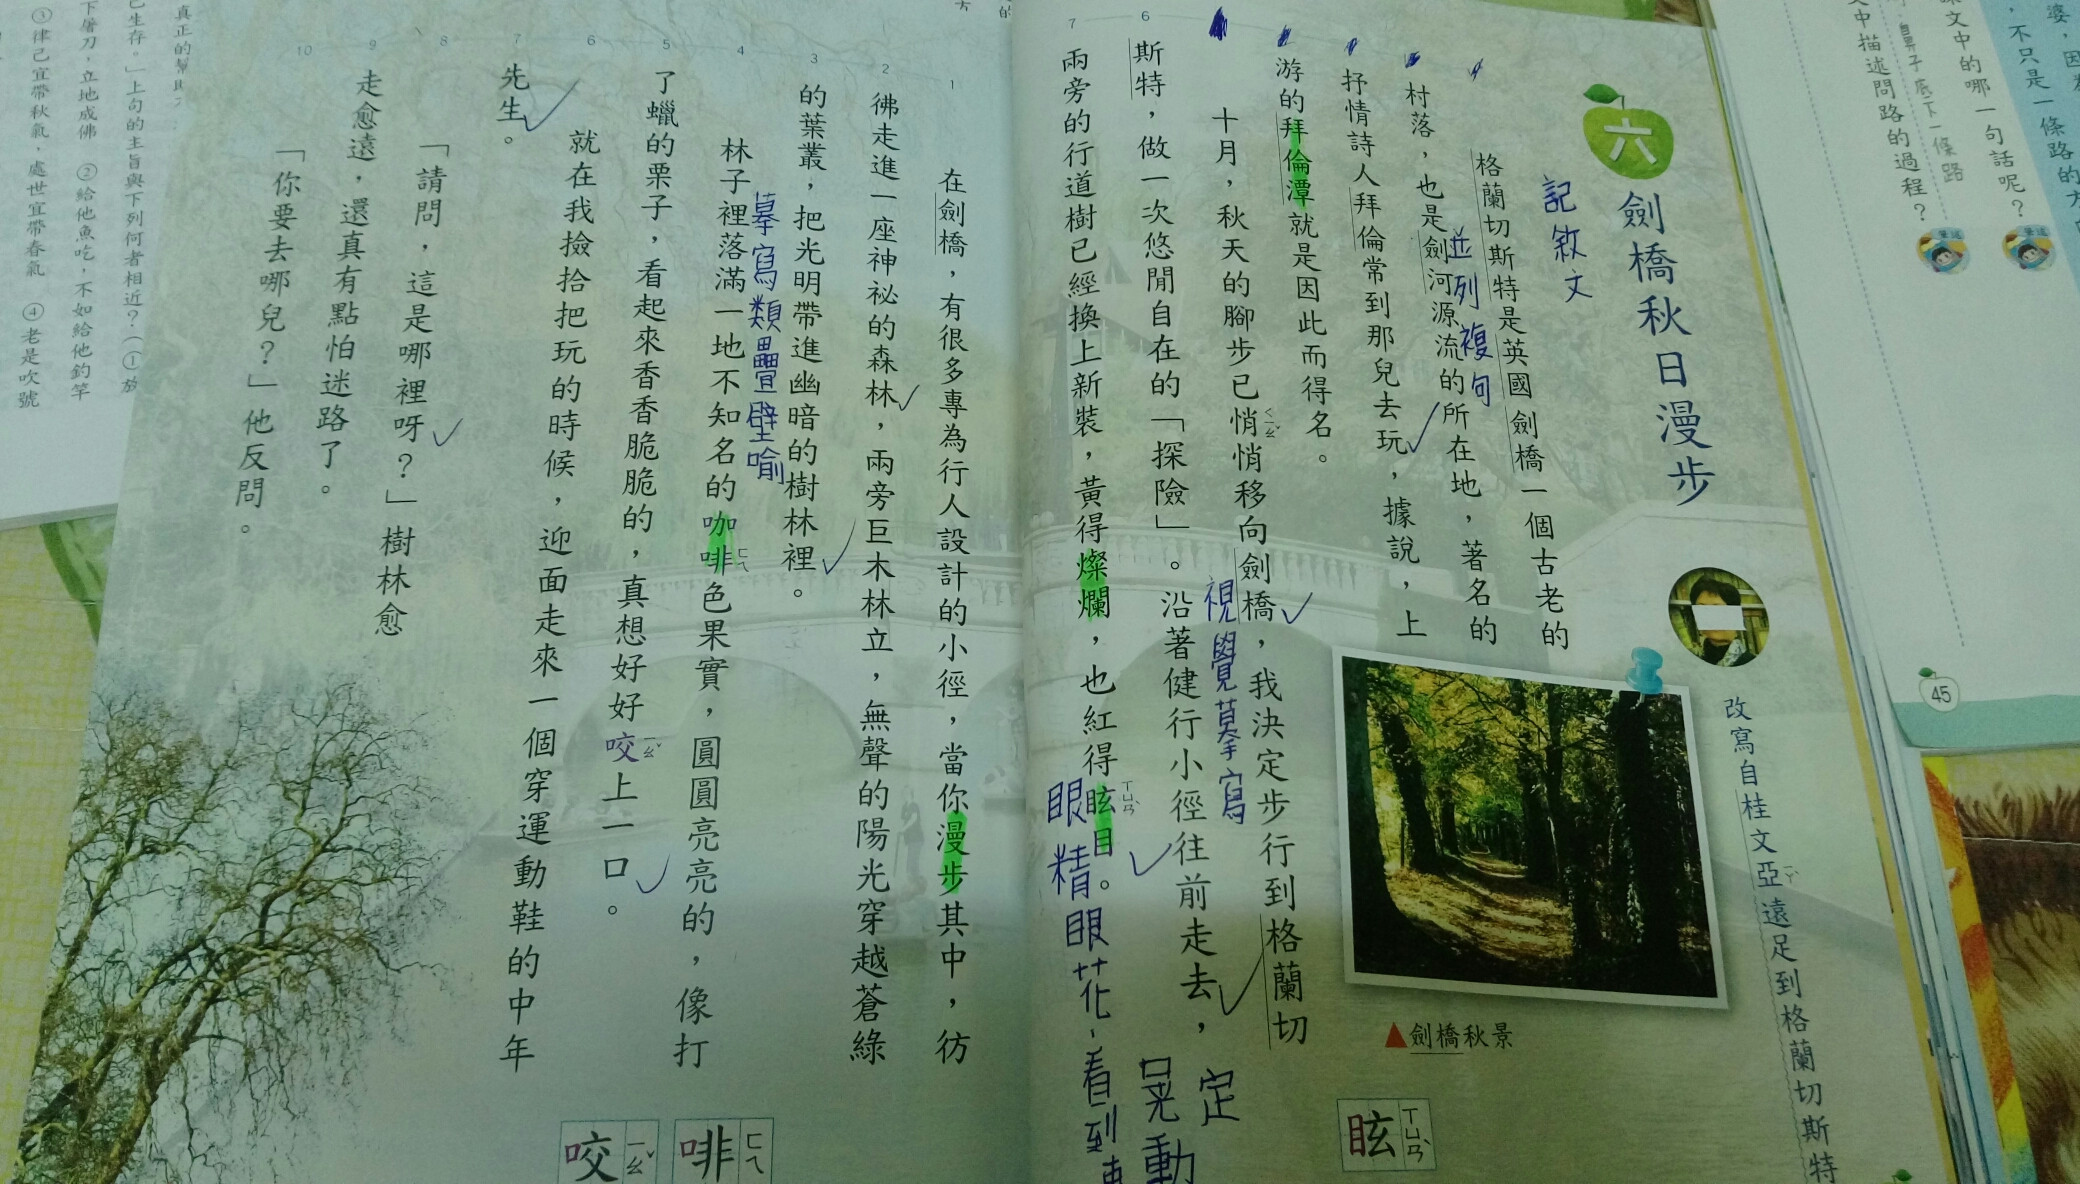 六
劍橋秋日漫步
記敘文
改寫自桂文亞遠足到格蘭切斯特
格蘭切斯特是英國劍橋一個古老的
村落，也是劍河源流的所在地，著名的
並列複句
抒情詩人拜倫常到那兒去玩，據說，上
游的拜倫潭就是因此而得名。
十月，秋天的腳步已悄悄移向劍橋，我決定步行到格蘭切
ㄑㄧㄠˇ
視覺摹寫
斯特，做一次悠閒自在的「探險」。沿著健行小徑往前走去，
兩旁的行道樹已經換上新裝，黃得燦爛，也紅得眩目。
ㄒㄩㄢˋ
眼精眼花、看到
晃動
定
▲劍橋秋景
眩 ㄒㄩㄢˋ
在劍橋，有很多專為行人設計的小徑，當你漫步其中，彷
彿走進一座神祕的森林，兩旁巨木林立，無聲的陽光穿越蒼綠
的葉叢，把光明帶進幽暗的樹林裡。
摹寫類疊壁喻
林子裡落滿一地不知名的咖啡色果實，圓圓亮亮的，像打
ㄈㄟ
了蠟的栗子，看起來香香脆脆的，真想好好咬上一口。
ㄧㄠˇ
就在我撿拾把玩的時候，迎面走來一個穿運動鞋的中年
先生。
「請問，這是哪裡呀？」樹林愈
走愈遠，還真有點怕迷路了。
「你要去哪兒？」他反問。
啡 ㄈㄟ
咬 ㄧㄠˇ
1
2
3
4
5
6
7
8
9
10
6
7
45
婆，因為
，不只是一條路的方
課文中的哪一句話呢？
鼻子底下一條路
文中描述問路的過程？
真正的幫助
己生存。」上句的主旨與下列何者相近？（①放
下屠刀，立地成佛 ②給他魚吃，不如給他釣竿
③律己宜帶秋氣，處世宜帶春氣 ④老是吹號